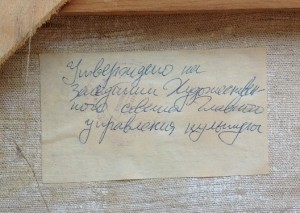 Утверждено на
заседании Художествен-
ного совета главного
управления культуры